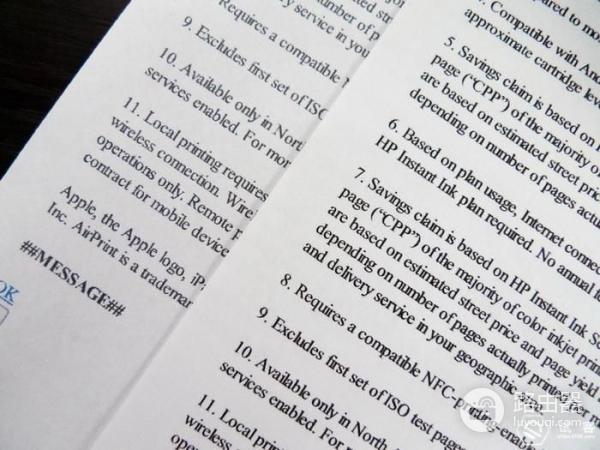 Requires a compatible
9. Excludes first set of ISO
10. Available only in North
services enabled. For more
11. Local printing requires
wireless connection. Wire
operations only. Remote
contract for mobile device
Apple, the Apple logo, iP
Inc. AirPrint is a trademar
##MESSAGE##
OK
4. Compatible with And
approximate cartridge leve
5. Savings claim is based on
page (“CPP”) of the majority of
are based on estimated street pric
depending on number of pages actua
6. Based on plan usage, Internet connec
HP Instant Ink plan required. No annual fe
7. Savings claim is based on HP Instant Ink Se
page (“CPP”) of the majority of color inkjet prin
are based on estimated street price and page yield
depending on number of pages actually printed
and delivery service in your geographic
8. Requires a compatible NFC-printing-enab
9. Excludes first set of ISO test pages
10. Available only in North A
services enabled. For mo
11. Local prin
wireless c
opera
路由器
luyouqi.com